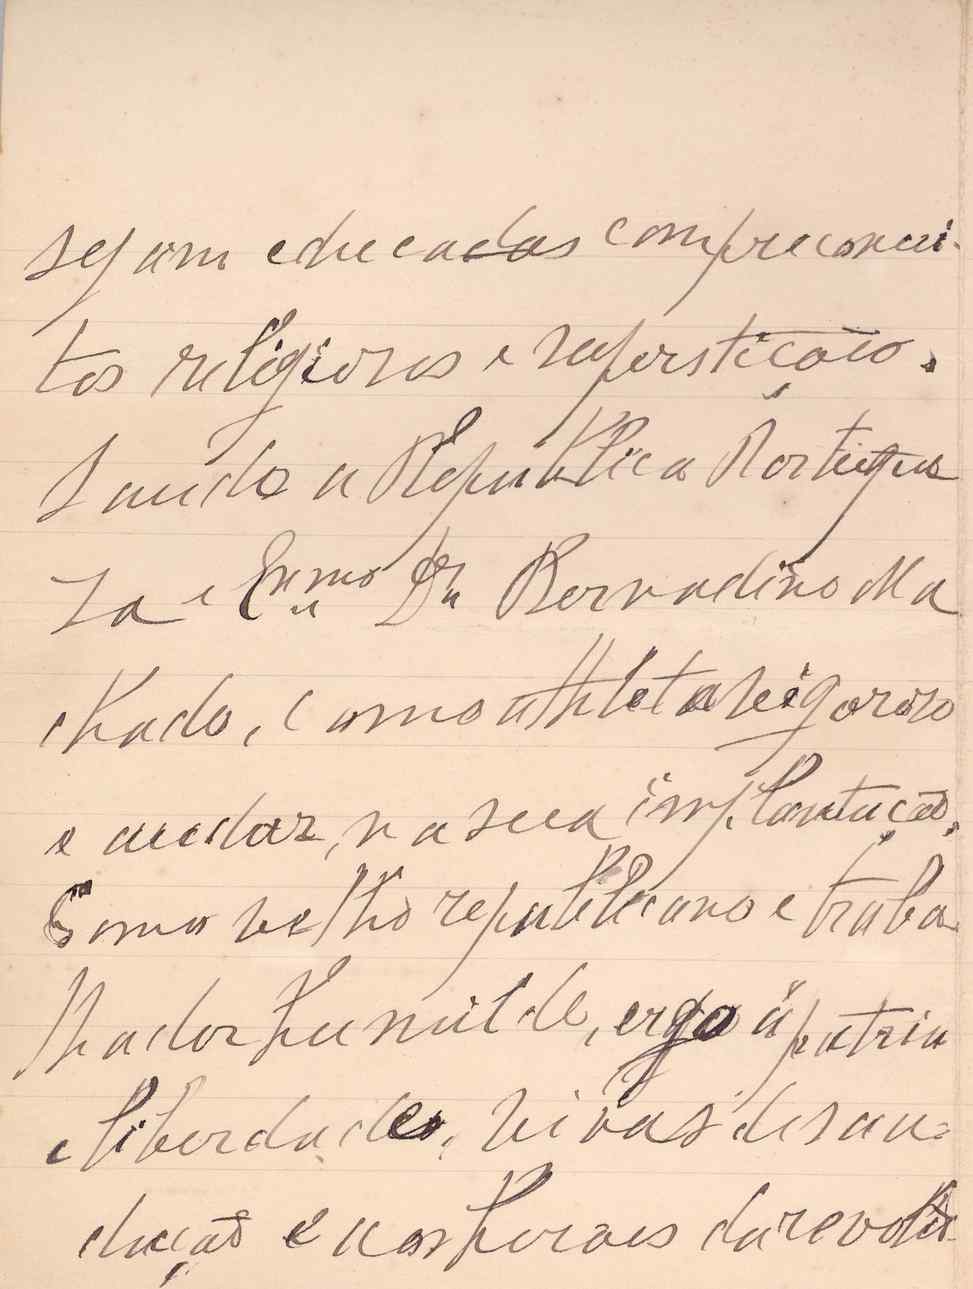 sejam educadas com preconcei-
tos religiosos e superstição.
Saudo a Républica Portugue
za e Exmo Dr Bernadino Ma
chado, como athleta vigoroso
e audaz, na sua implantação.
Como velho republicano e traba
lhador humilde, ergo á patria
e liberdade, vivas de sau=
dação e aos heroes da revolu-